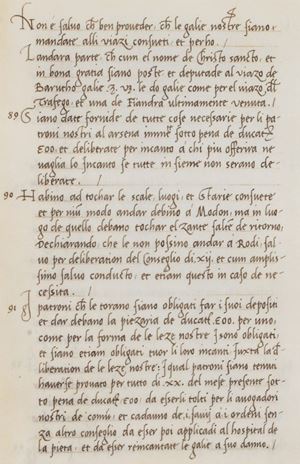 Non è salvo ch ben proveder, ch le galie nostre siano
mandate alli viazi consueti, et perho. /
Landara parte, ch cum el nome de Christo sancto, et
in bona gratia siano poste et deputade al viazo de
Barutho galie 3. vz. le do galie come per el viazo dl
Trafego, et una de Fiandra ultimamente venuta. /
89 Siano date fornide de tutte cose necessarie per li pa
troni nostri al arsena sotto pena de ducati
500, et deliberate per incanto a chi piu offerira ne
vaglia lo incanto se tutte in sieme non serano de-
liberate. /
90 Habino ad tochar le scale, luogi, et starie consuete
et per niun modo andar debino a Modon, ma in luo-
go de quello debano tochar el zante salte de ritorno,
Dechiarando, che le non possino andar a Rodi, sal-
vo per deliberation del Conseglio di xij, et cum amplis-
simo salvo conducto, et etiam questo in caso de ne
cessita. /
91 I patroni ch le torano siano obligati far i suoi depositi
et dar debano la piezaria de ducati 500. per uno,
come per la forma de le leze nostre sono obligati,
et siano etiam obligati tuor li loro incanti juxta la de
liberation de le leze nostre, I qual patroni siano tenuti
haverse provato per tutto dì xx. del mese presente sot-
to pena de ducati 500, da esserli tolti per li avogadori
nostri de comun, et cadauno de i, savij a i ordeni sen
za altro conseglio da esser poi applicadi al hospital de
la pieta, et da esser reincantate le galie a suo danno. /